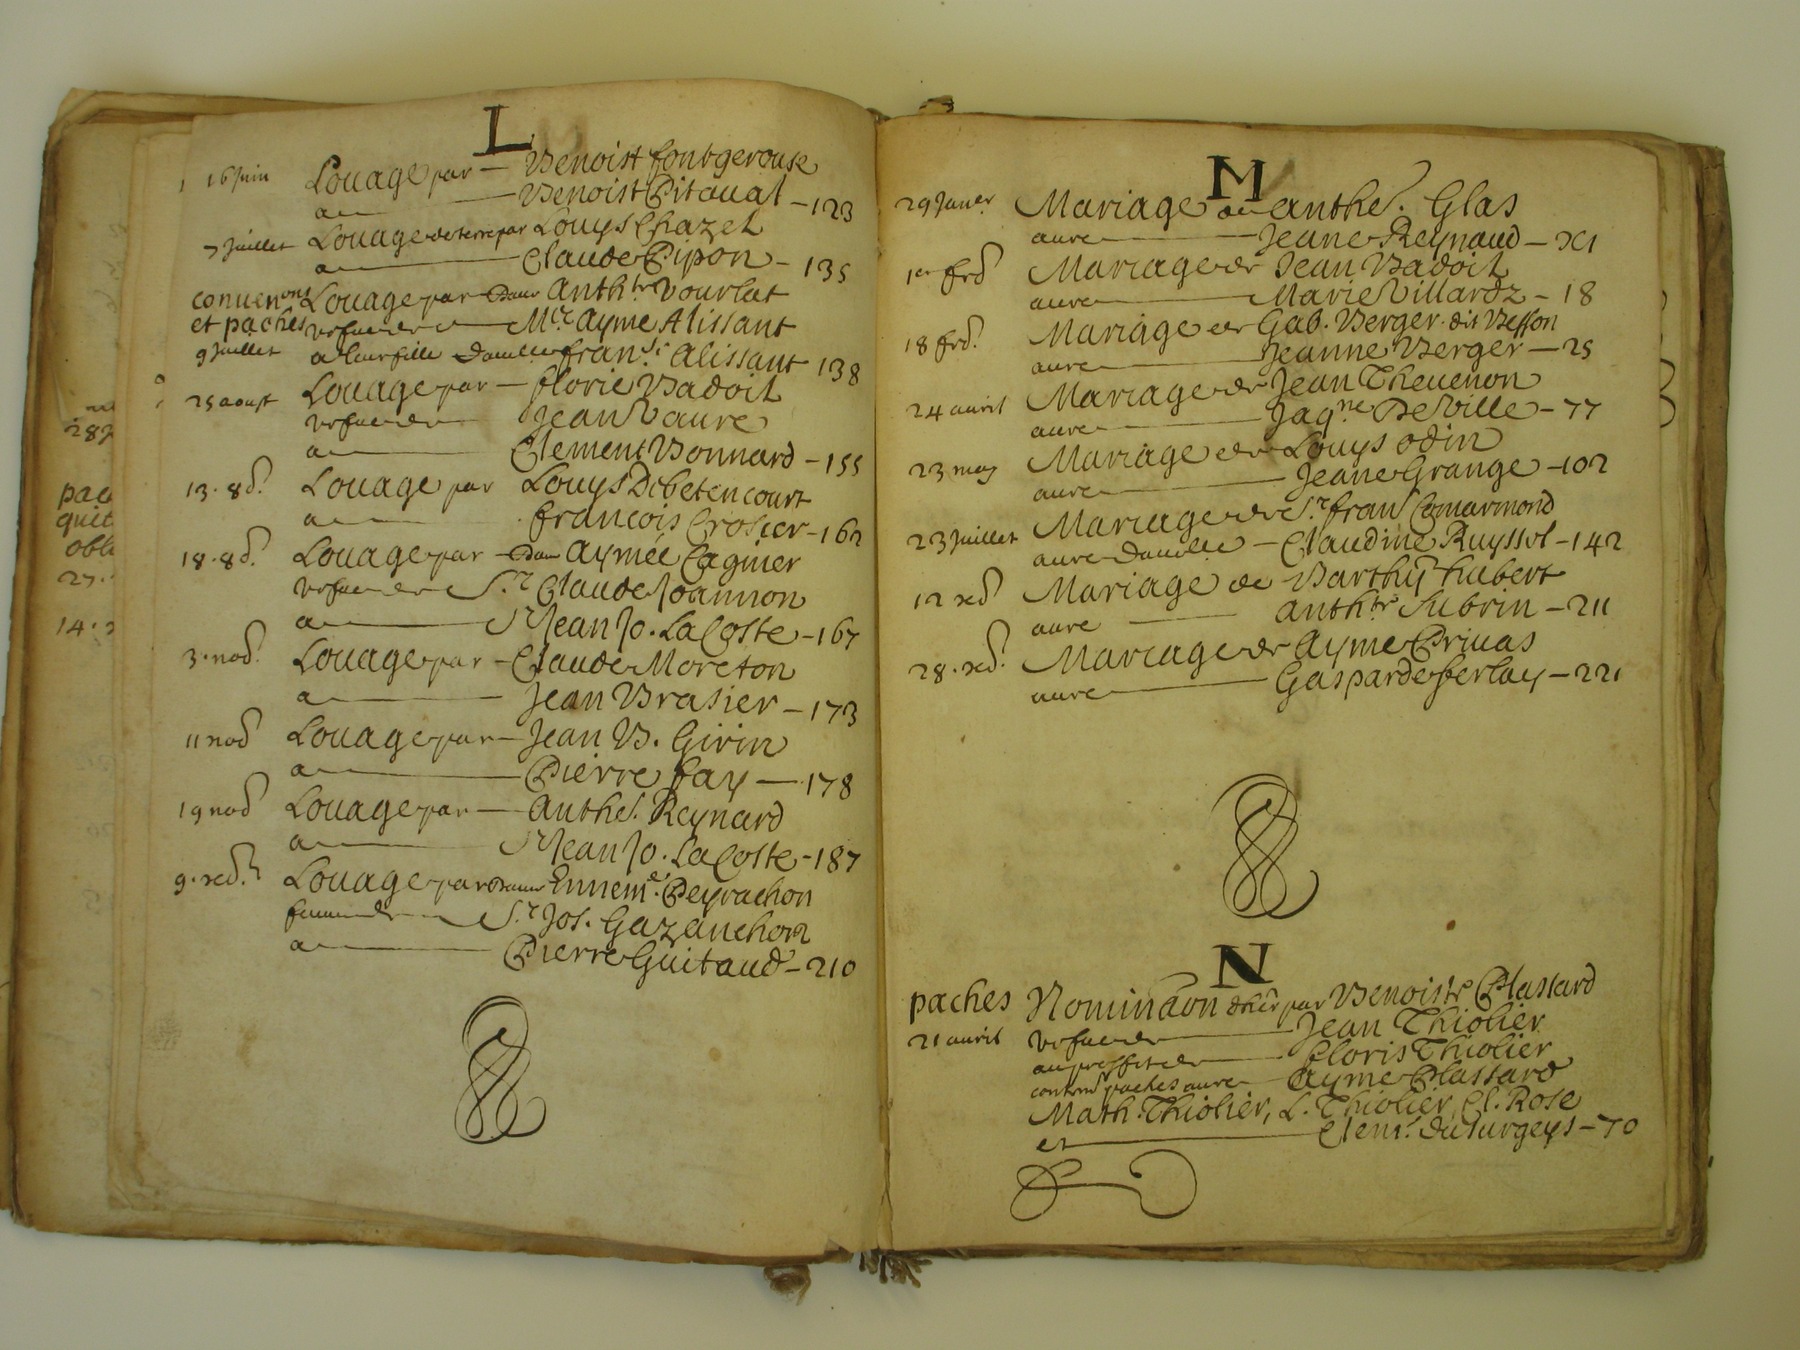 L
16 Juin Louage par — Benoist fontgerouse
a — Benoist Pitaual — 123
7 Juillet Louage de terre par Louys Chazel
a — Claude Pipon — 135
conuenons Louage par Dam Anthte Vourlat
et paches vefue de — Mre Ayme Alissant
9 Juillet a leur fille Damlle franse Alissant 138
25 aoust Louage par — florie Badoil
vefue de Jean Vaure
a — Clement Bonnard — 155
13. 8d. Louage par Louys Debetencourt
a — francois Crosier — 162
18. 8d. Louage par — Dam Aymée Cagnier
vefue de Sr Claude Joannon
a — Sr Jean Jo. La Coste — 167
3. nod. Louage par — Claude Moreton
a — Jean Brasier — 173
11 nod Louage par — Jean B. Girin
a — Pierre fay — 178
19 nod Louage par — Anthe. Reynard
a — Sr Jean Jo. La Coste — 187
9. xd. Louage par Dame Enneme. Peyrachon
femme de Sr Jos. Gazanchon
a — Pierre Guitaud — 210
M
29 Janer Mariage de Anthe. Glas
auec — Jeane Reynaud — XI
1er frd Mariage de Jean Badoil
auec — Marie Villardz — 18
18 frd. Mariage de Gab. Verger dit Besson
auec — Jeanne Verger — 25
24 auril Mariage de Jean Theuenon
auec — Jaqne De Ville — 77
23 may Mariage de Louys odin
auec — Jeane Grange — 102
23 Juillet Mariage de Sr fran Comarmond
auec Damlle — Claudine Ruyssol — 142
12 xd Mariage de Barthy hubert
auec — Anthte Subrin — 211
28. xd. Mariage de Ayme Priuas
auec — Gasparde ferlay — 221
N
paches Nominaon dher par Benoiste Plassard
21 auril vefue de — Jean Thiolier
au proffit de — floris Thiolier
content paches auec — Ayme Plassard
Math. Thiolier, L. Thiolier, Cl. Rose
et — Clemt. Duturgeys — 70